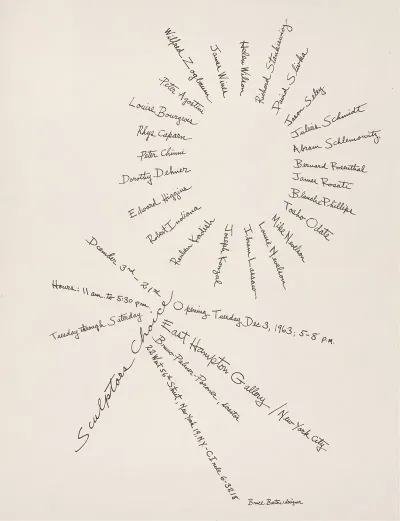 Wilfrid Zogbaum
James Wines
Helen Wilson
Richard Stankiewicz
David Slivka
Jason Seley
Julius Schmidt
Abram Schlemowitz
Bernard Rosenthal
James Rosati
Blanche Phillips
Toshio Odate
Mike Nevelson
Louise Nevelson
Ibram Lassaw
Joseph Konzal
Reuben Kadish
Robert Indiana
Edward Higgins
Dorothy Dehner
Peter Chinni
Rhys Caparn
Louise Bourgeois
Peter Agostini
December 3rd - 21st
Hours: 11 am. to 5:30 pm.
Tuesday through Saturday
Sculptors Choice
Opening Tuesday, Dec 3, 1963; 5-8 P.M.
East Hampton Gallery / New York City
Bruno Palmer-Poroner, director
22 West 56th Street, New York 19, N.Y. - CIrcle 6-3218